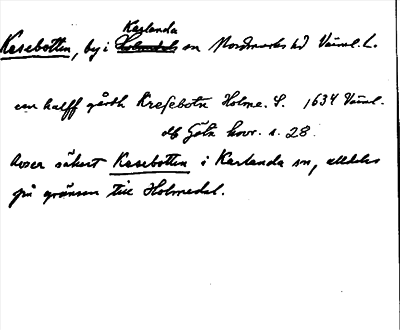 Karlanda
Kasebotten, by i Holmedals sn Nordmarks hd Värml. L.
en halff gårdh Kresebotn Holme. S. 1634 Värml.
Göta hovr. s. 28.
Avser säkert Kasebotten i Karlanda sn, alldeles
på gränsen till Holmedal.